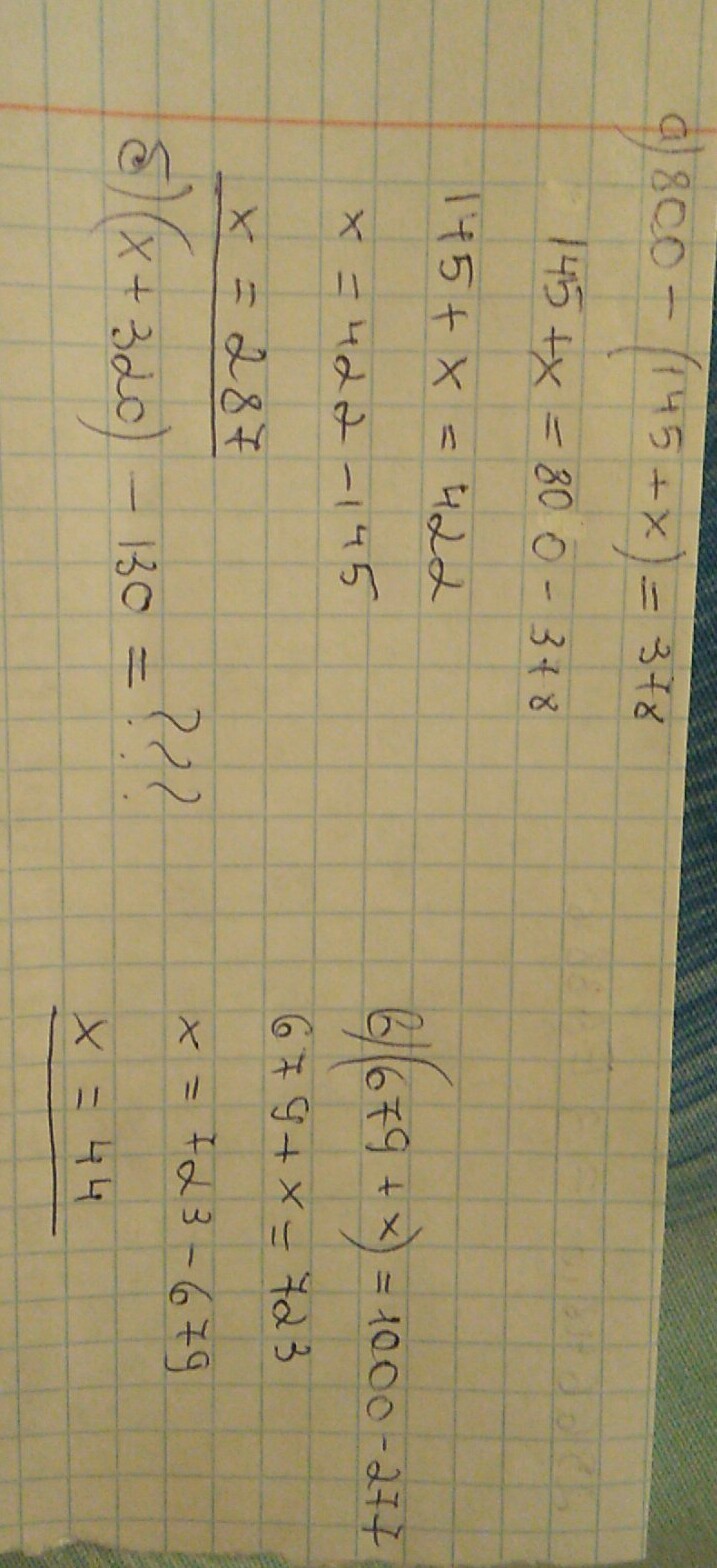 а) 800 - (145 + x) = 378
145 + x = 800 - 378
145 + x = 422
x = 422 - 145
x = 287
б) (x + 320) - 130 = ???
в) (679 + x) = 1000 - 277
679 + x = 723
x = 723 - 679
x = 44